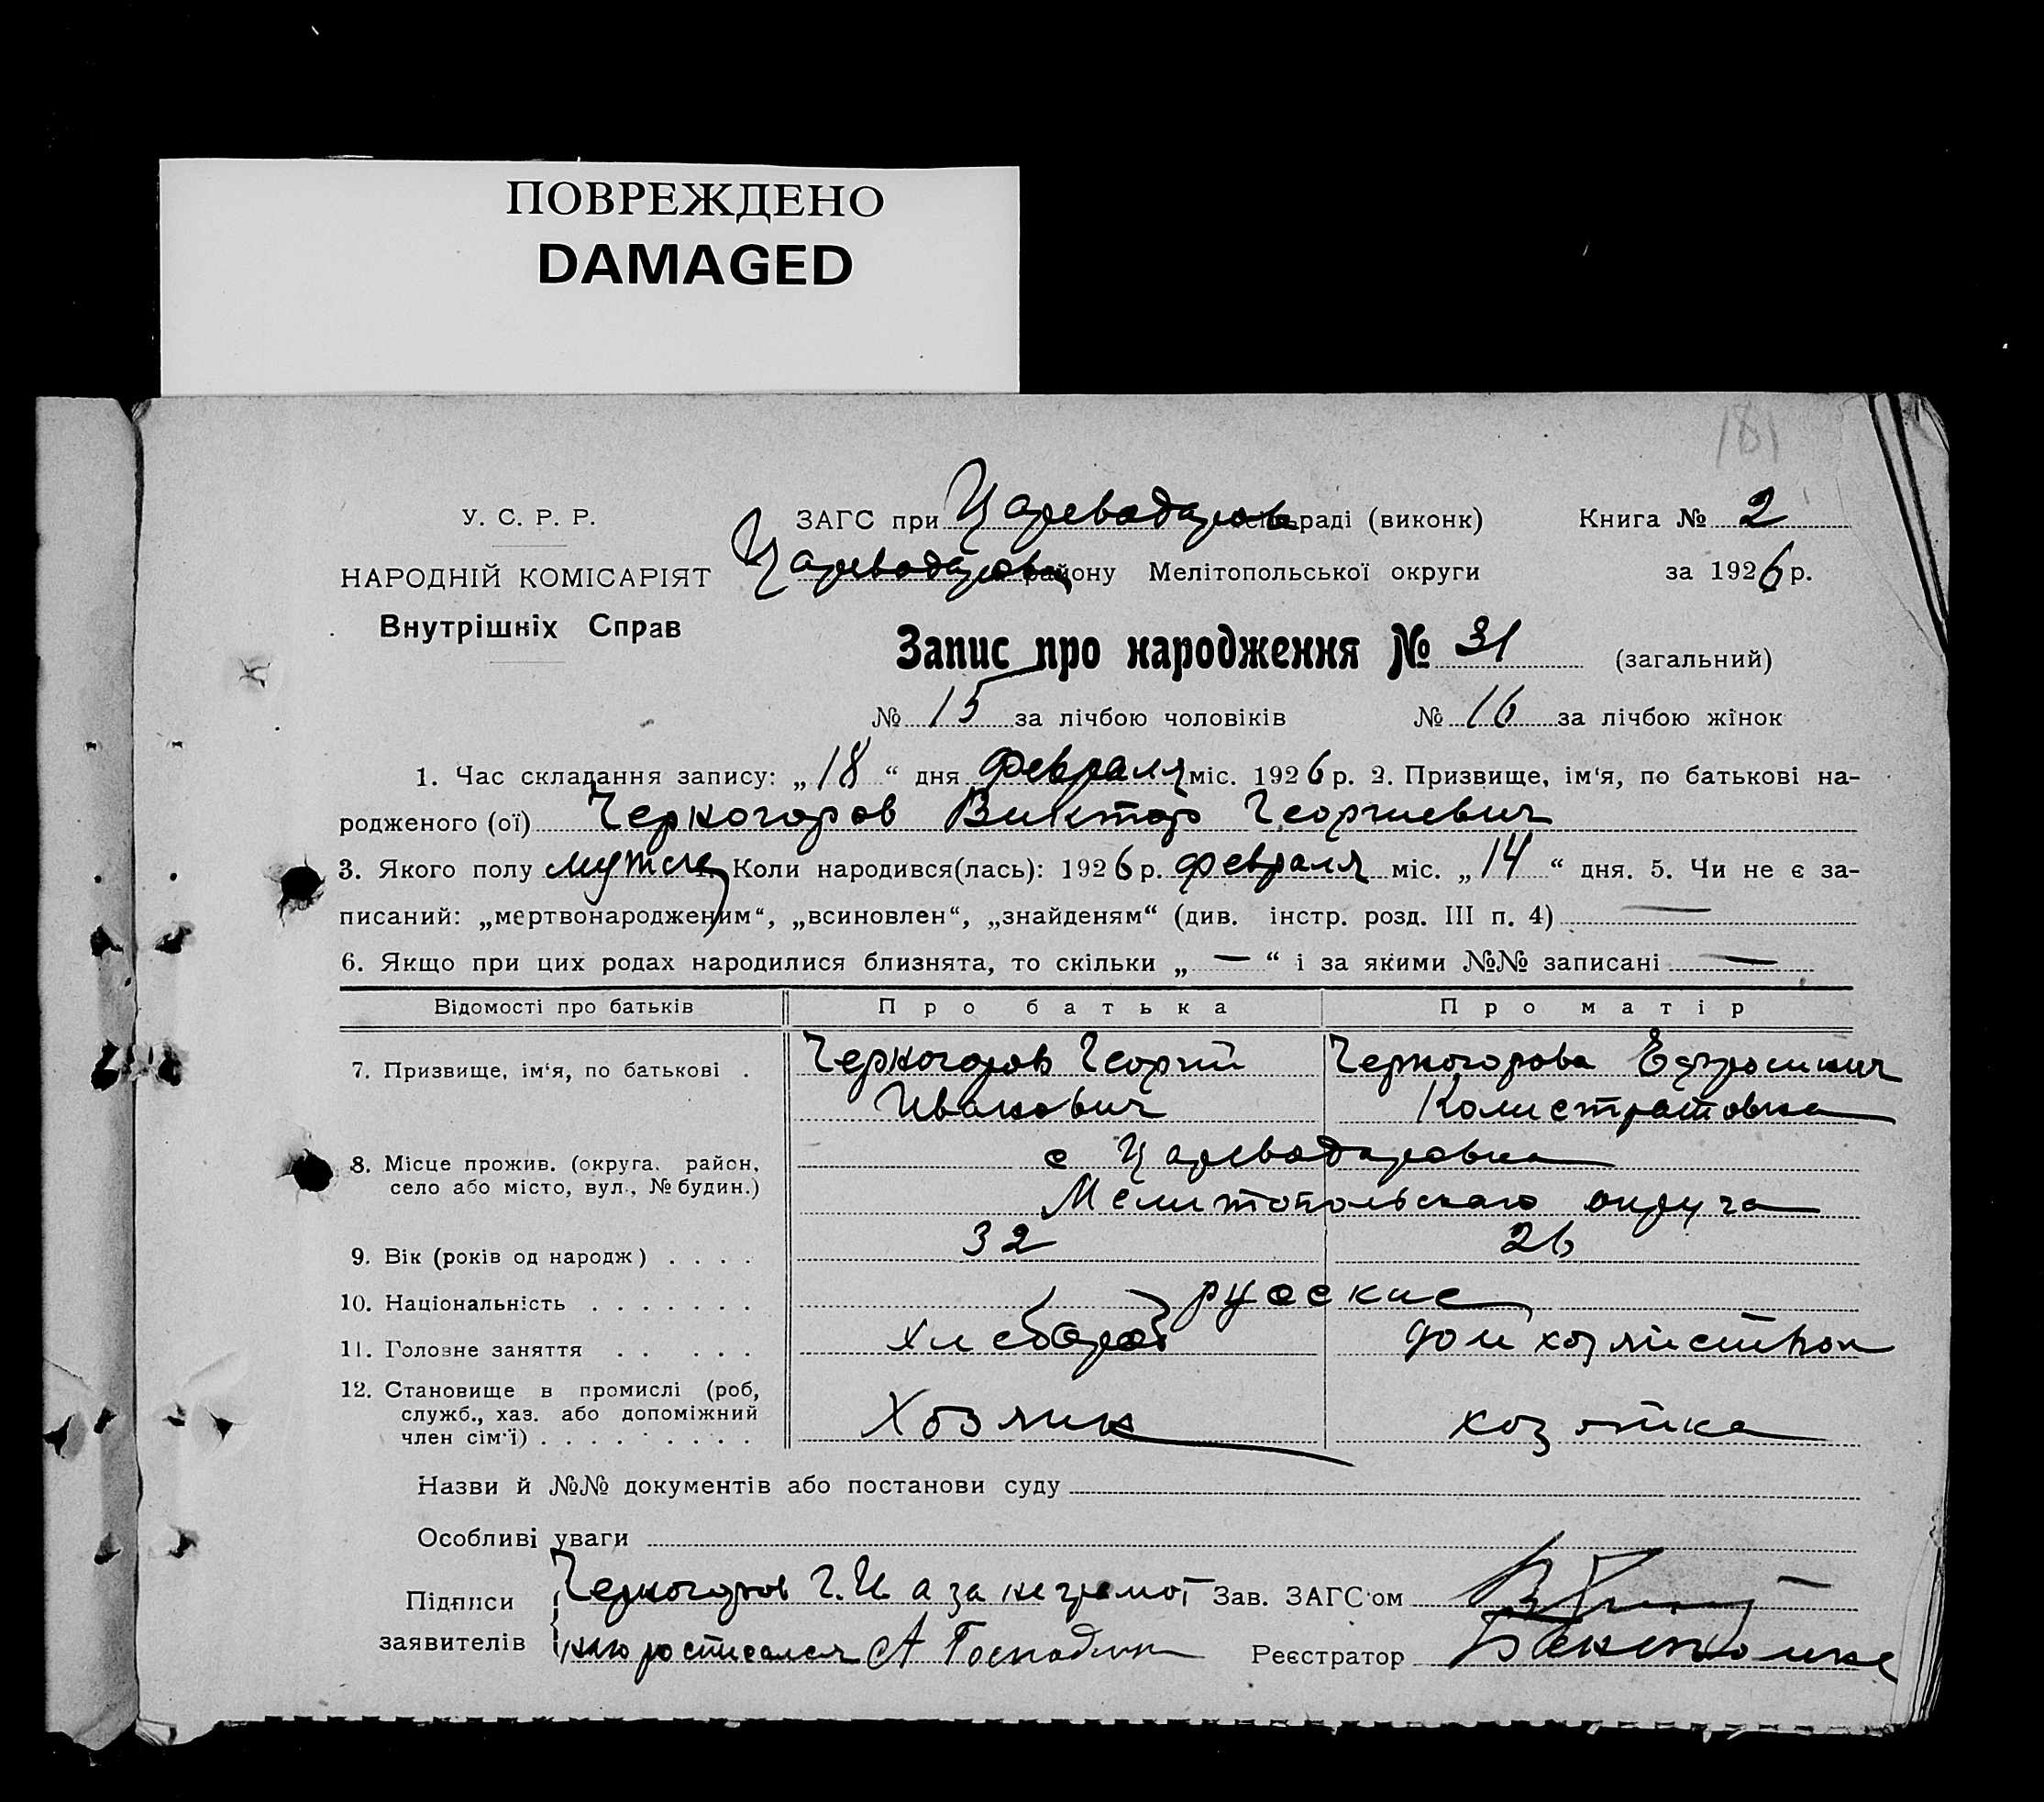 ПОВРЕЖДЕНО
DAMAGED
181
У. С. Р. Р.
НАРОДНІЙ КОМІСАРІЯТ
Внутрішніх Справ
ЗАГС при Цареводаров раді (виконк) Книга № 2
Цареводаров району Мелітопольської округи за 1926 р.
Запис про народження № 31 (загальний)
№ 15 за лічбою чоловіків № 16 за лічбою жінок
1. Час складання запису: „18“ дня февраля міс. 1926 р. 2. Призвище, ім‘я, по батькові на-
родженого (ої) Черногоров Виктор Георгиевич
3. Якого полу мужск Коли народився(лась): 1926 р. февраля міс. „14“ дня. 5. Чи не є за-
писаний: „мертвонародженим“, „всиновлен“, „знайденям“ (див. інстр. розд. III п. 4) —
6. Якщо при цих родах народилися близнята, то скільки „ — “ і за якими №№ записані —
Відомості про батьків Про батька Про матір
7. Призвище, ім‘я, по батькові . Черногоров Георгий Черногорова Ефросиния
Иванович Калистратовна
8. Місце прожив. (округа, район, с Цареводаровка
село або місто, вул., № будин.) Мелитопольскаго округа
9. Вік (років од народж) . . . . 32 26
10. Національність . . . . . . . русские
11. Головне заняття . . . . . хлебороб дом хозяйством
12. Становище в промислі (роб,
служб., хаз. або допоміжний Хозяин хозяйка
член сім‘ї) . . . . . . . . .
Назви й №№ документів або постанови суду
Особливі уваги
Підписи Черногоров Г. И а за неграмот Зав. ЗАГС‘ом
заявителів наго росписался А Господин Реєстратор